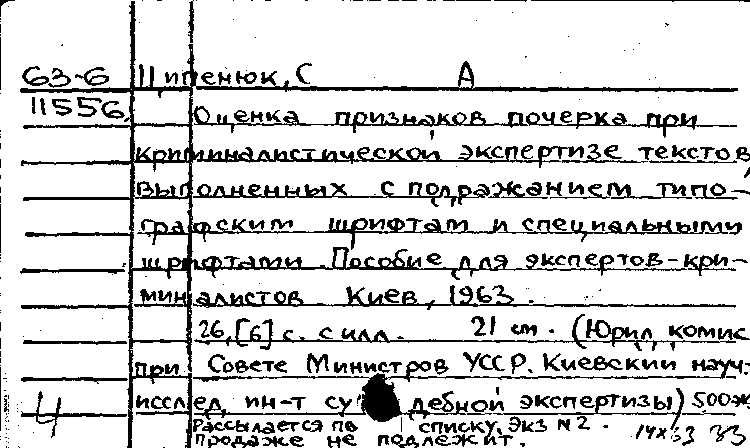 63-6 Ципенюк, С А
11556
Оценка признаков почерка при
криминалистической экспертизе текстов,
выполненных с подражанием типо-
графским шрифтам и специальными
шрифтами. Пособие для экспертов-кри-
миналистов. Киев, 1963.
26,[6] с. с илл. 21 см. (Юрид. комис
при Совете Министров УССР. Киевский науч.-
исслед. ин-т судебной экспертизы) 500 ж
Рассылается по списку. Экз N2.
Продаже не подлежит.
4